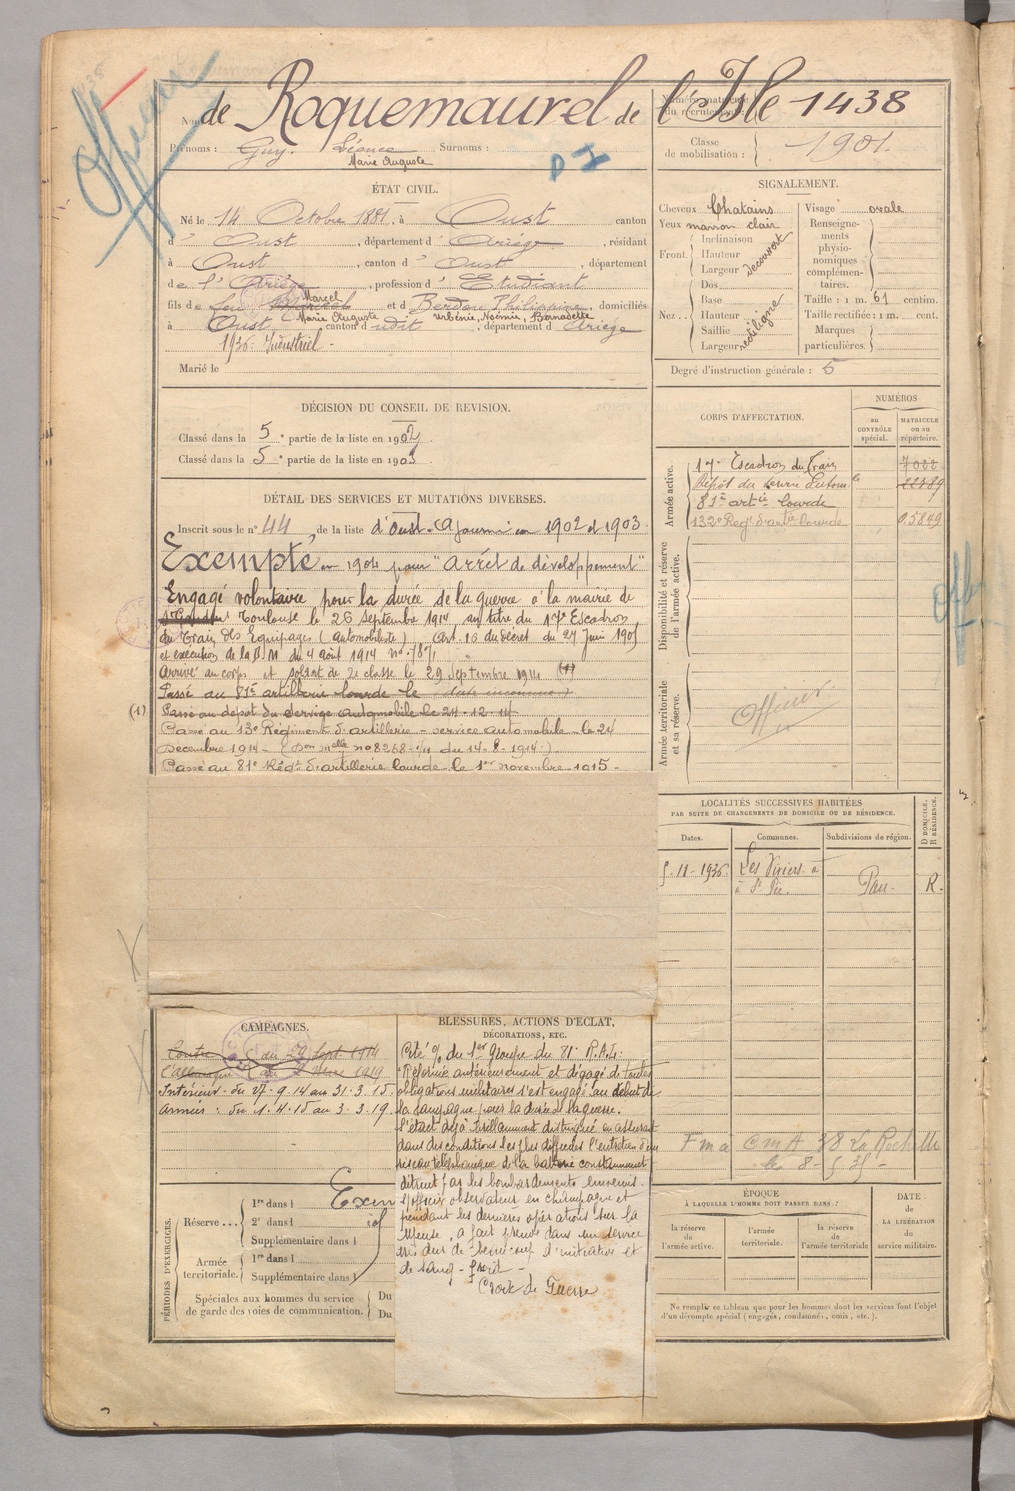 de Roquemaurel de l'Isle
Numéro matricule du recrutement : 1438
Prénoms : Guy. Léonce Marie Auguste Surnoms :
Classe de mobilisation : 1901.
Officier
ÉTAT CIVIL.
Né le 14 Octobre 1881, à Oust canton
d' Oust, département d' Ariège, résidant
à Oust, canton d' Oust, département
de l' Ariège, profession d' Etudiant
fils de feu Marcel Marie Auguste et d Berdou Philippine Noémie, Bernadette, domiciliés
à Oust, canton d udit, département d' Ariège
1936: Industriel -
Marié le
SIGNALEMENT.
Cheveux Chatains
Yeux marron clair
Front. Inclinaison
Hauteur
Largeur
découvert
Nez.. Dos
Base
Hauteur
Saillie
Largeur
rectiligne
Visage ovale
Renseignements physionomiques complémentaires.
Taille : 1 m. 61 centim.
Taille rectifiée : 1 m. cent.
Marques particulières.
Degré d'instruction générale : 5
DÉCISION DU CONSEIL DE REVISION.
Classé dans la 5e partie de la liste en 1902.
Classé dans la 5e partie de la liste en 1903.
DÉTAIL DES SERVICES ET MUTATIONS DIVERSES.
Inscrit sous le n° 44 de la liste d'Oust. Ajourné en 1902 et 1903.
Exempté en 1904 pour "Arrêt de développement"
Engagé volontaire pour la durée de la guerre à la mairie de
Toulouse le 26 Septembre 1914, au titre du 17e Escadron
du Train des Equipages (automobiliste) art. 16 du décret du 27 juin 1905
et exécution de la D M du 4 août 1914
Arrivé au corps et soldat de 2e classe le 29 Septembre 1914 (1)
Passé au 81e artillerie lourde le (date inconnue)
(1) Passé au dépôt du service automobile le 24-12-14
Passé au 13e Régiment d'artillerie - service automobile le 24
Décembre 1914 - (Don melle no 8268-1/11 du 14-8-1914)
Passé au 81e Régt d'artillerie lourde le 1er novembre 1915 -
CORPS D'AFFECTATION.
NUMÉROS
au contrôle spécial.
matricule ou au répertoire.
Armée active.
17e Escadron du Train 7022
Dépôt du Service Autom le
81e artie lourde
132e Reg' d'artie lourde 05849
Disponibilité et réserve de l'armée active.
Armée territoriale et sa réserve.
Officier
LOCALITÉS SUCCESSIVES HABITÉES
PAR SUITE DE CHANGEMENTS DE DOMICILE OU DE RÉSIDENCE.
Dates. Communes. Subdivisions de région. D DOMICILE. R RÉSIDENCE.
5-11-1936 Les Viviers à Pau - R.
à St Pée.
CAMPAGNES.
Contre l'Allemagne
Intérieur : du 27.9.14 au 31.3.15.
Armées : du 1.4.15 au 3.3.19.
BLESSURES, ACTIONS D'ÉCLAT,
DÉCORATIONS, ETC.
Cité % du 1er Groupe du 81e R.A.L:
"Réformé antérieurement et dégagé de toutes
obligations militaires s'est engagé au début de
la campagne pour la durée de la guerre.
S'était déjà brillamment distingué en assurant
dans des conditions les plus difficiles l'entretien d'un
réseau téléphonique de la batterie constamment
détruit par les bombardements ennemis.
officier observateur en champagne et
pendant les dernières opérations sur la
Meuse, a fait preuve dans un service
très dur de beaucoup d'initiative et
de sang-froid -
Croix de Guerre
PÉRIODES D'EXERCICES.
Réserve... 1re dans l Exem
2e dans l
Supplémentaire dans l
Armée territoriale. 1re dans l
Supplémentaire dans l
Spéciales aux hommes du service de garde des voies de communication. Du
Du
C m A 18 La Rochelle
ÉPOQUE
À LAQUELLE L'HOMME DOIT PASSER DANS :
la réserve de l'armée active.
l'armée territoriale.
la réserve de l'armée territoriale
DATE :
DE LA LIBÉRATION du service militaire.
Ne remplir ce tableau que pour les hommes dont les services font l'objet
d'un décompte spécial (engagés, condamnés, omis, etc.).